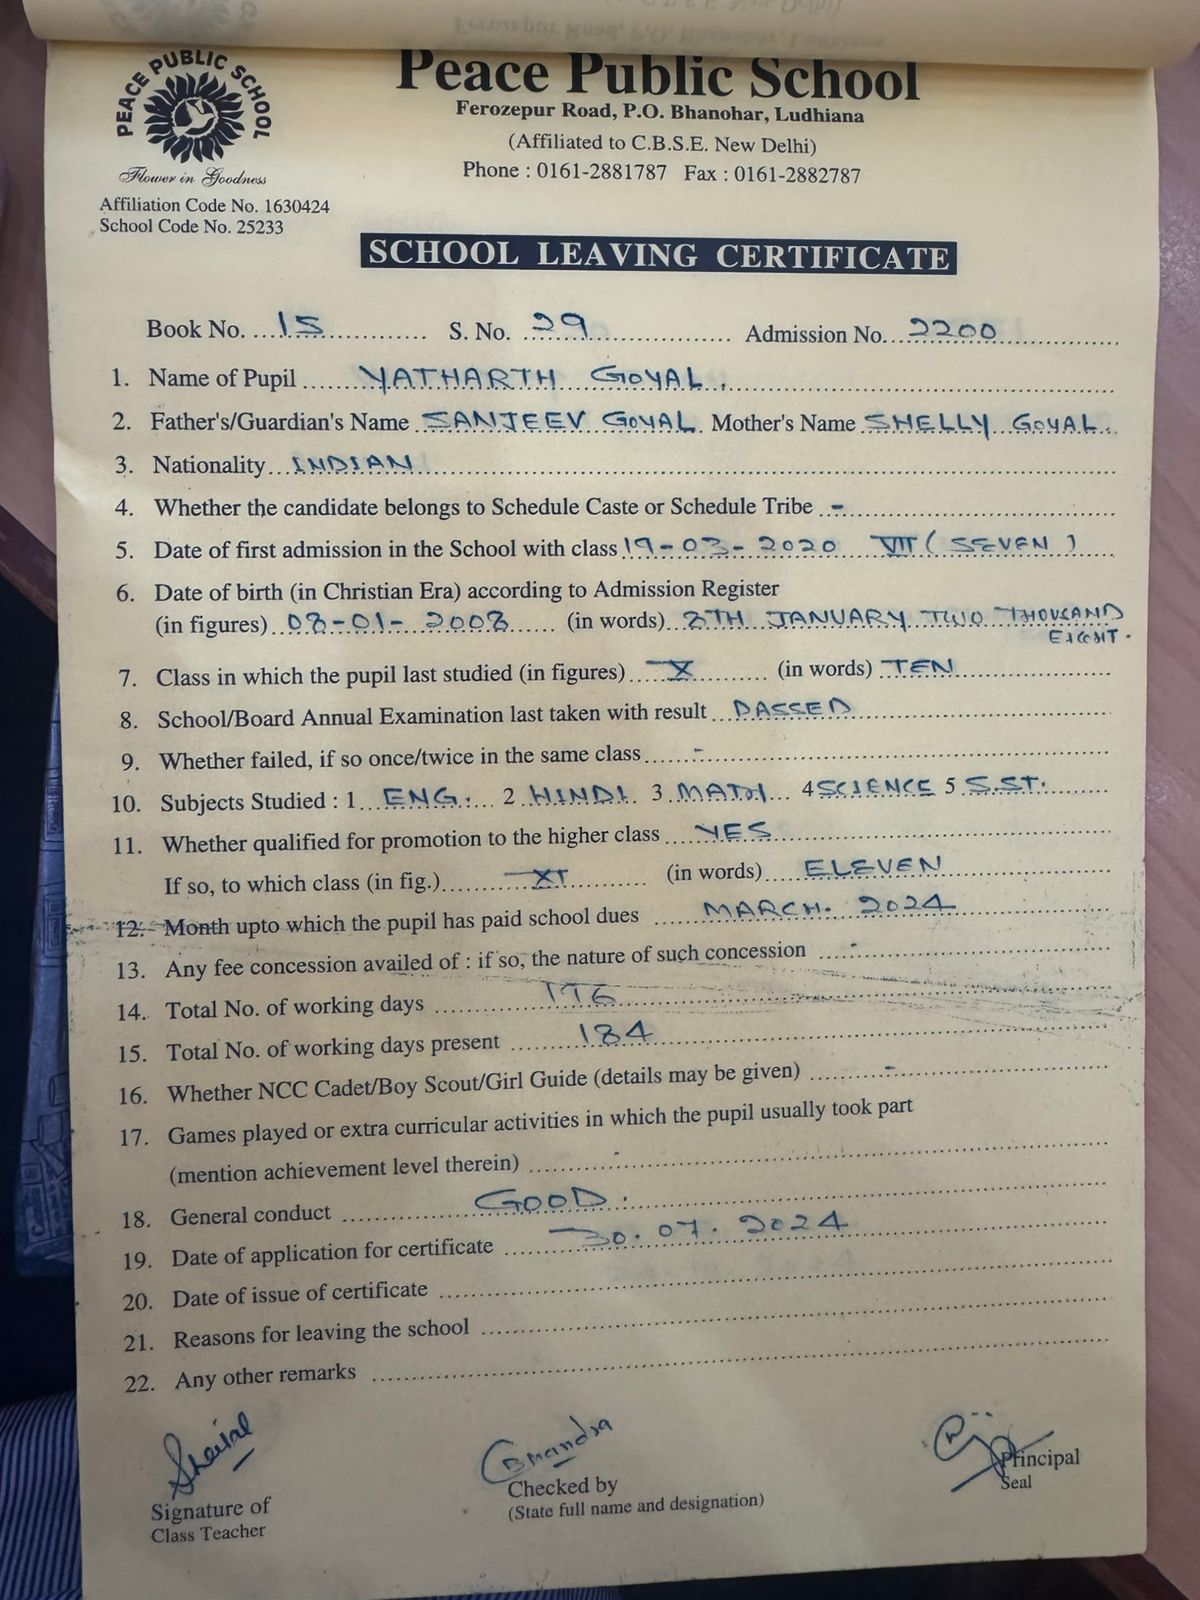 PEACE PUBLIC SCHOOL
Flower in Goodness
Affiliation Code No. 1630424
School Code No. 25233
Peace Public School
Ferozepur Road, P.O. Bhanohar, Ludhiana
(Affiliated to C.B.S.E. New Delhi)
Phone : 0161-2881787 Fax : 0161-2882787
SCHOOL LEAVING CERTIFICATE
Book No. 15 S. No. 29 Admission No. 2200
1. Name of Pupil YATHARTH GOYAL.
2. Father's/Guardian's Name SANJEEV GOYAL Mother's Name SHELLY GOYAL.
3. Nationality INDIAN
4. Whether the candidate belongs to Schedule Caste or Schedule Tribe -
5. Date of first admission in the School with class 19-03-2020 VII (SEVEN)
6. Date of birth (in Christian Era) according to Admission Register
(in figures) 08-01-2008 (in words) 8TH JANUARY TWO THOUSAND
EIGHT.
7. Class in which the pupil last studied (in figures) X (in words) TEN
8. School/Board Annual Examination last taken with result PASSED
9. Whether failed, if so once/twice in the same class -
10. Subjects Studied : 1 ENG. 2 HINDI. 3 MATH 4 SCIENCE 5 S.ST.
11. Whether qualified for promotion to the higher class YES
If so, to which class (in fig.) XI (in words) ELEVEN
12. Month upto which the pupil has paid school dues MARCH. 2024
13. Any fee concession availed of : if so, the nature of such concession -
14. Total No. of working days
15. Total No. of working days present 184
16. Whether NCC Cadet/Boy Scout/Girl Guide (details may be given) -
17. Games played or extra curricular activities in which the pupil usually took part
(mention achievement level therein) -
18. General conduct GOOD.
19. Date of application for certificate 30.07.2024
20. Date of issue of certificate
21. Reasons for leaving the school
22. Any other remarks
Signature of
Class Teacher
Checked by
(State full name and designation)
Principal
Seal